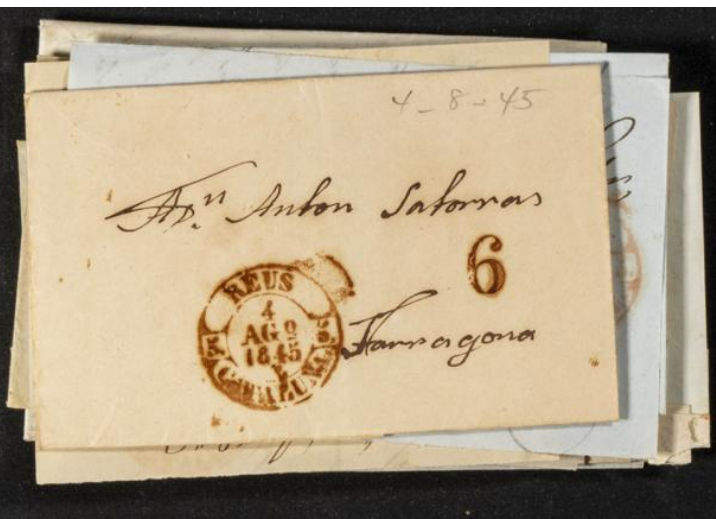 4-8-45
Dn Anton Satorras
6
REUS
4
AGO
1845
5 5
CATALUÑA
Tarragona